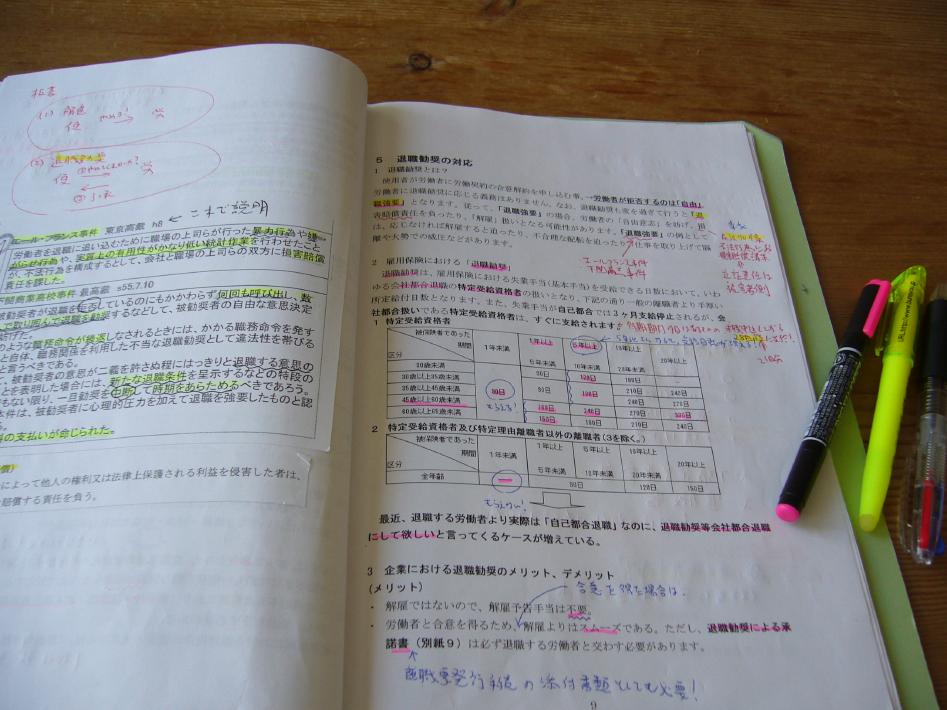 (1) 解雇
使 → 労
(2) 退職勧奨
使 労
② 了承
← これで説明
エール・フランス事件 東京高裁 h8
労働者を退職に追い込むために職場の上司らが行った暴力行為や
や、実質上の有用性がかなり低い統計作業を行わせたこと
が、不法行為を構成するとして、会社と職場の上司らの双方に損害賠償
責任を課した。
関商業高校事件 最高裁 s55.7.10
被勧奨者が退職を否しているのにもかかわらず何回も呼び出し、数
で取り囲んで退職を勧奨するなどして、被勧奨者の自由な意思決定
妨げた。
のような職務命令が繰返しなされるときには、かかる職務命令を発す
と自体、職務関係を利用した不当な退職勧奨として違法性を帯びる
と言うべきである。
て、被勧奨者の意思が二義を許さぬ程にはっきりと退職する意思の
とを表明した場合には、新たな退職条件を呈示するなどの特段の
ない限り、一旦勧奨を中断して時期をあらためるべきであろう。
本件は、被勧奨者に心理的圧力を加えて退職を強要したものと認
の支払いが命じられた。
によって他人の権利又は法律上保護される利益を侵害した者は、
賠償する責任を負う。
5 退職勧奨の対応
1 退職勧奨とは?
使用者が労働者に労働契約の合意解約を申し込む事。労働者が拒否するのは「自由」
労働者に退職勧奨に応じる義務はありません。なお、退職勧奨も度を過ぎて行うと「退
職強要」となります。従って、「退職強要」の場合、労働者の「自由意志」を妨げ、損
害賠償責任を負ったり、「解雇」扱いとなる可能性があります。「退職強要」の例として
は、応じなければ解雇すると迫ったり、不合理な配転を迫ったり、仕事を取り上げて隔
離や大勢での威圧などがあります。
エールフランス事件
下関商工事件
2 雇用保険における「退職勧奨」
退職勧奨は、雇用保険における失業手当(基本手当)を受給できる日数において、いわ
ゆる会社都合退職の特定受給資格者の扱いとなり、下記の通り一般の離職者より手厚い
所定給付日数となります。また、失業手当が自己都合では3ヶ月支給停止されるが、会
社都合扱いである特定受給資格者は、すぐに支給されます
1 特定受給資格者
被保険者であった期間 区分 1年未満 1年以上 5年未満 5年以上 10年未満 10年以上 20年未満 20年以上
30歳未満 90日 120日 180日
30歳以上35歳未満 90日 90日 180日 210日 240日
35歳以上45歳未満 240日 270日
45歳以上60歳未満 180日 240日 270日 330日
60歳以上65歳未満 150日 180日 210日 240日
もらえる!
2 特定受給資格者及び特定理由離職者以外の離職者(3を除く。)
被保険者であった期間 区分 1年未満 1年以上 5年未満 5年以上 10年未満 10年以上 20年未満 20年以上
全年齢 ー 90日 120日 150日
もらえない!
最近、退職する労働者より実際は「自己都合退職」なのに、退職勧奨等会社都合退職
にして欲しいと言ってくるケースが増えている。
3 企業における退職勧奨のメリット、デメリット
(メリット)
合意を得た場合は、
・ 解雇ではないので、解雇予告手当は不要。
・ 労働者と合意を得るため、解雇よりはスムーズである。ただし、退職勧奨による承
諾書(別紙9)は必ず退職する労働者と交わす必要があります。
離職票発行手続の添付書類としても必要!
9